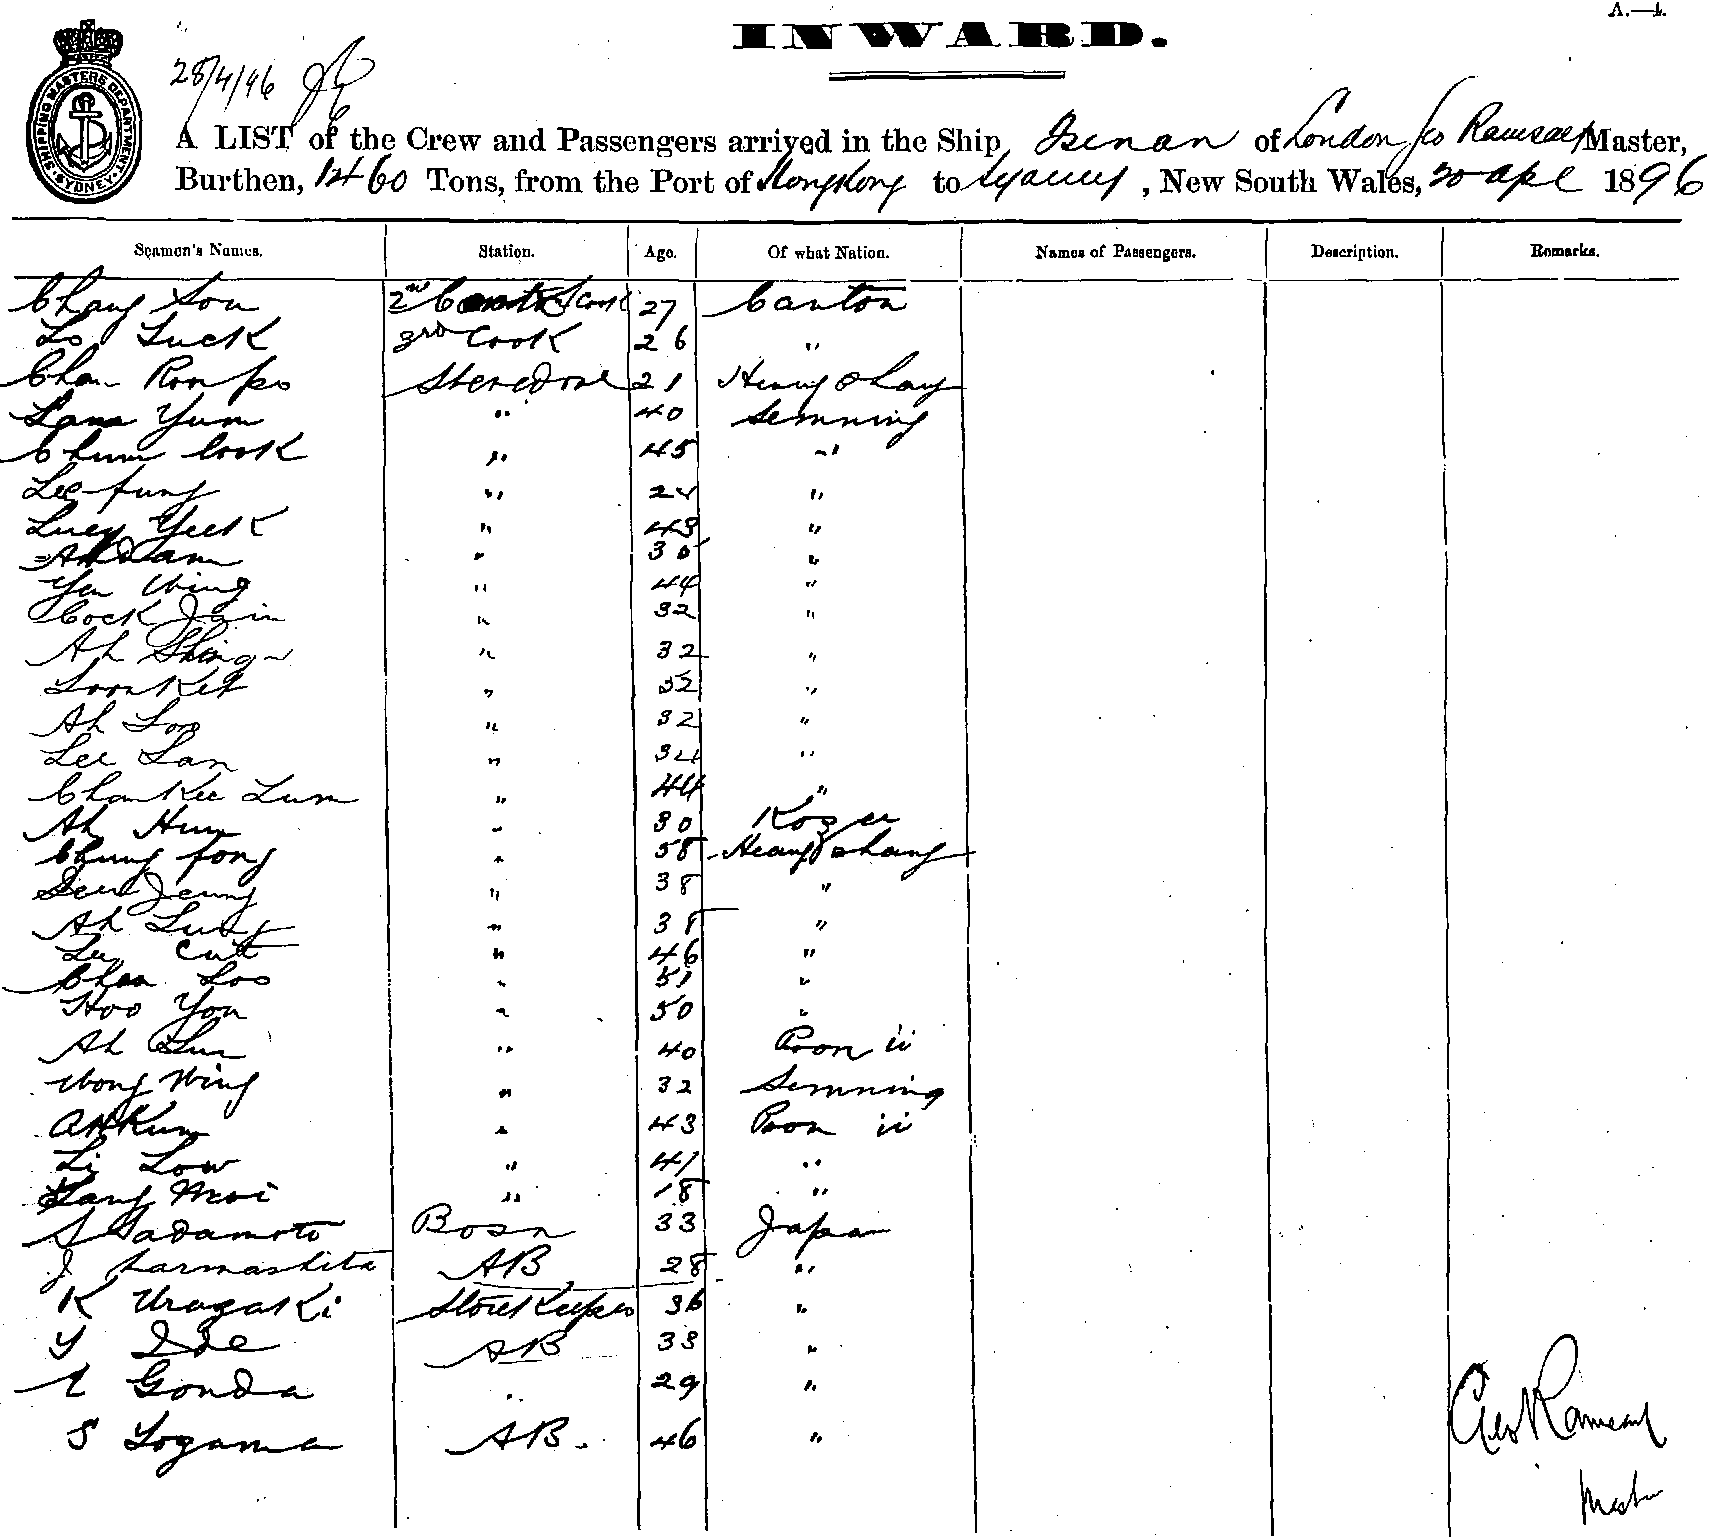 A.—1.
INWARD.
SHIPPING MASTERS DEPARTMENT SYDNEY
28/4/96
A LIST of the Crew and Passengers arrived in the Ship of London Geo Ramsay Master,
Burthen, 1460 Tons, from the Port of Hongkong to Sydney, New South Wales, 20 Apl 1896
Seamen's Names. Station. Age. Of what Nation. Names of Passengers. Description. Remarks.
Chang Sou 2nd Cook 27 Canton
Lo Luck 3rd Cook 26 "
Chan Stevedore 21
Lam Yum " 40 Semning
Chum Cook " 45 "
Lee fung " 24 "
Luey Yeek " 43 "
Ah Dam " 30 "
Yu Wing " 44 "
Cock Jain " 32 "
Ah Shing " 32 "
Loonket " 32 "
Ah Loo " 32 "
Lee Lan " 34 "
Chankee Lum " 44 "
Ah Hum " 30
Chung fong " 58 Heang Shang
Jeung " 38 "
Ah Lung " 38 "
Cut " 46 "
Chan Loo " 51 "
Hoo You " 50 "
Ah Sun " 40 Poon ii
Wong Wing " 32 Semning
Ah Kum " 43 Poon ii
Li Low " 41 "
Yang Moi " 18 "
S Sadamoto Bosn 33 Japan
J Harmashita AB 28 "
K Uragaki Storekeeper 36 "
Y Ide AB 33 "
Gonda " 29 "
S Togama AB. 46 "
Geo Ramsay
Master